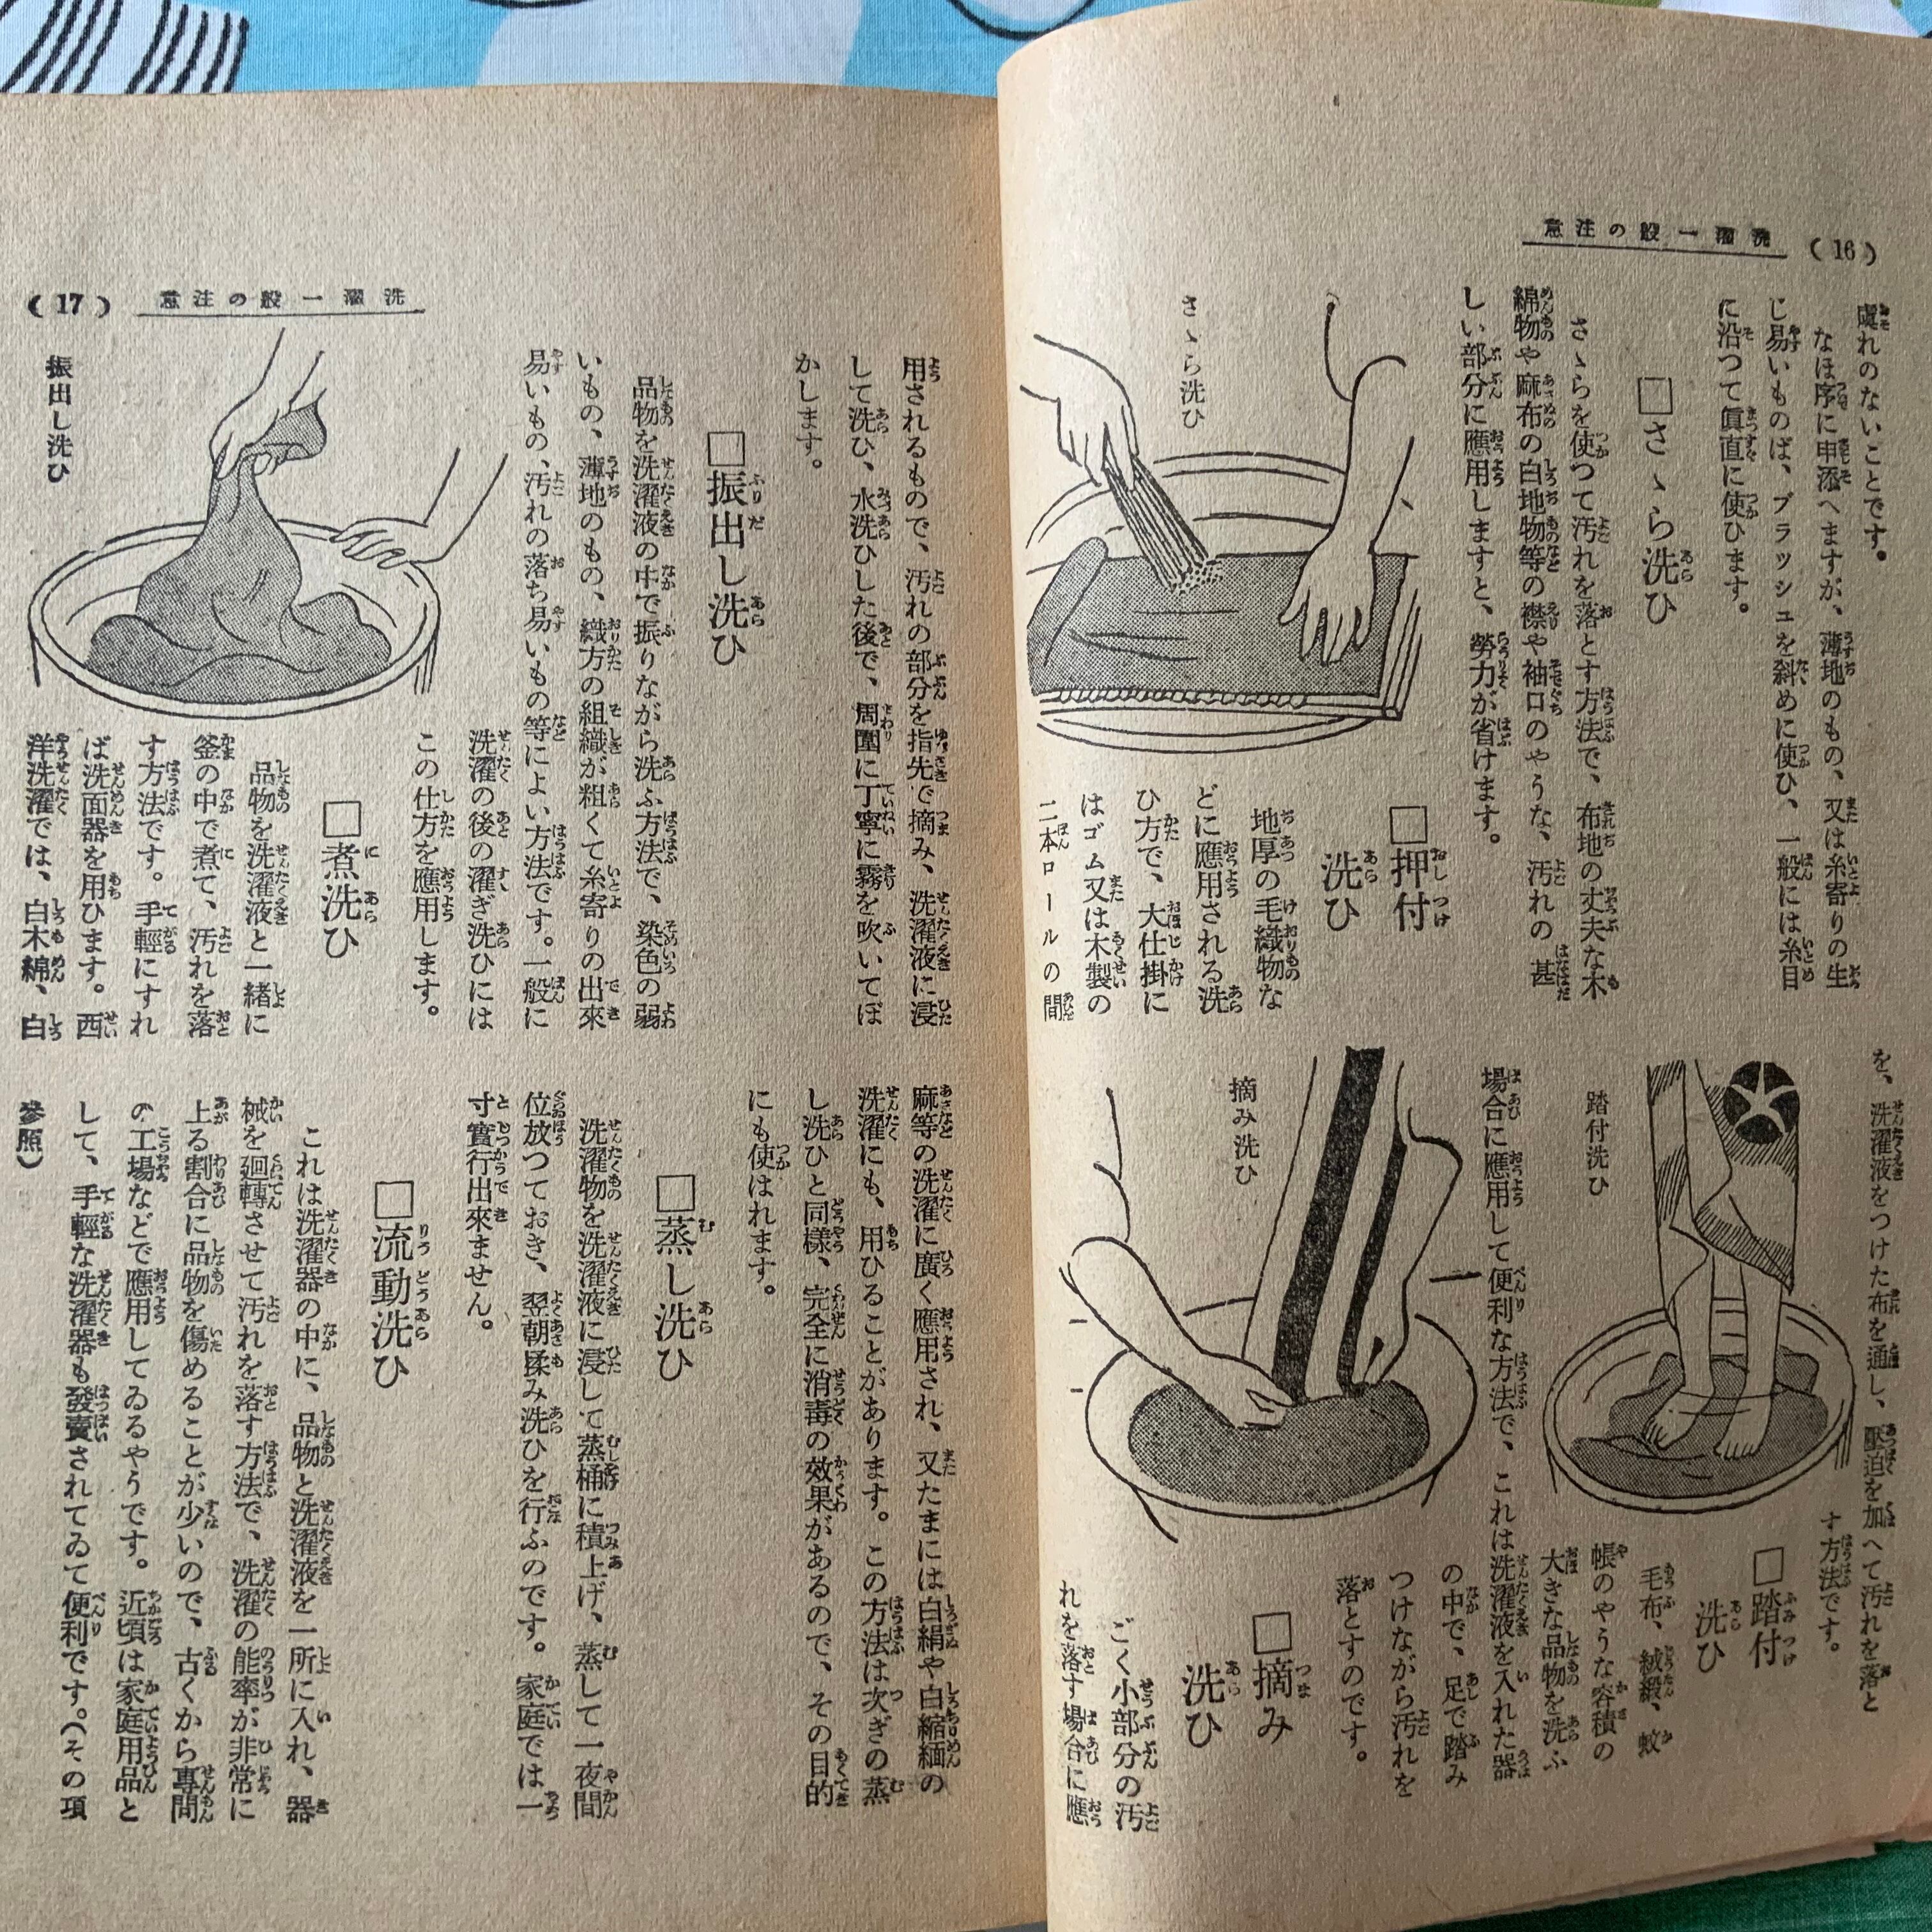 (16) 洗濯一般の注意
虞れのないことです。
なほ序に申添へますが、薄地のもの、又は糸寄りの生
じ易いものば、ブラッシュを斜めに使ひ、一般には糸目
に沿つて眞直に使ひます。
□さゝら洗ひ
さゝらを使つて汚れを落とす方法で、布地の丈夫な木
綿物や麻布の白地物等の襟や袖口のやうな、汚れの甚
しい部分に應用しますと、勞力が省けます。
さゝら洗ひ
□押付
洗ひ
地厚の毛織物な
どに應用される洗
ひ方で、大仕掛に
はゴム又は木製の
二本ロールの間
を、洗濯液をつけた布を通し、壓迫を加へて汚れを落と
す方法です。
□踏付
洗ひ
毛布、絨緞、蚊
帳のやうな容積の
大きな品物を洗ふ
踏付洗ひ
場合に應用して便利な方法で、これは洗濯液を入れた器
の中で、足で踏み
つけながら汚れを
落とすのです。
□摘み
洗ひ
ごく小部分の汚
れを落す場合に應
摘み洗ひ
洗濯一般の注意 (17)
用されるもので、汚れの部分を指先で摘み、洗濯液に浸
して洗ひ、水洗ひした後で、周圍に丁寧に霧を吹いてぼ
かします。
□振出し洗ひ
品物を洗濯液の中で振りながら洗ふ方法で、染色の弱
いもの、薄地のもの、織方の組織が粗くて糸寄りの出來
易いもの、汚れの落ち易いもの等によい方法です。一般に
洗濯の後の濯ぎ洗ひには
この仕方を應用します。
振出し洗ひ
□煮洗ひ
品物を洗濯液と一緒に
釜の中で煮て、汚れを落
す方法です。手輕にすれ
ば洗面器を用ひます。西
洋洗濯では、白木綿、白
麻等の洗濯に廣く應用され、又たまには白絹や白縮緬の
洗濯にも、用ひることがあります。この方法は次ぎの蒸
し洗ひと同樣、完全に消毒の效果があるので、その目的
にも使はれます。
□蒸し洗ひ
洗濯物を洗濯液に浸して蒸桶に積上げ、蒸して一夜間
位放つておき、翌朝揉み洗ひを行ふのです。家庭では一
寸實行出來ません。
□流動洗ひ
これは洗濯器の中に、品物と洗濯液を一所に入れ、器
械を廻轉させて汚れを落す方法で、洗濯の能率が非常に
上る割合に品物を傷めることが少いので、古くから專門
の工場などで應用してゐるやうです。近頃は家庭用品と
して、手輕な洗濯器も發賣されてゐて便利です。(その項
參照)